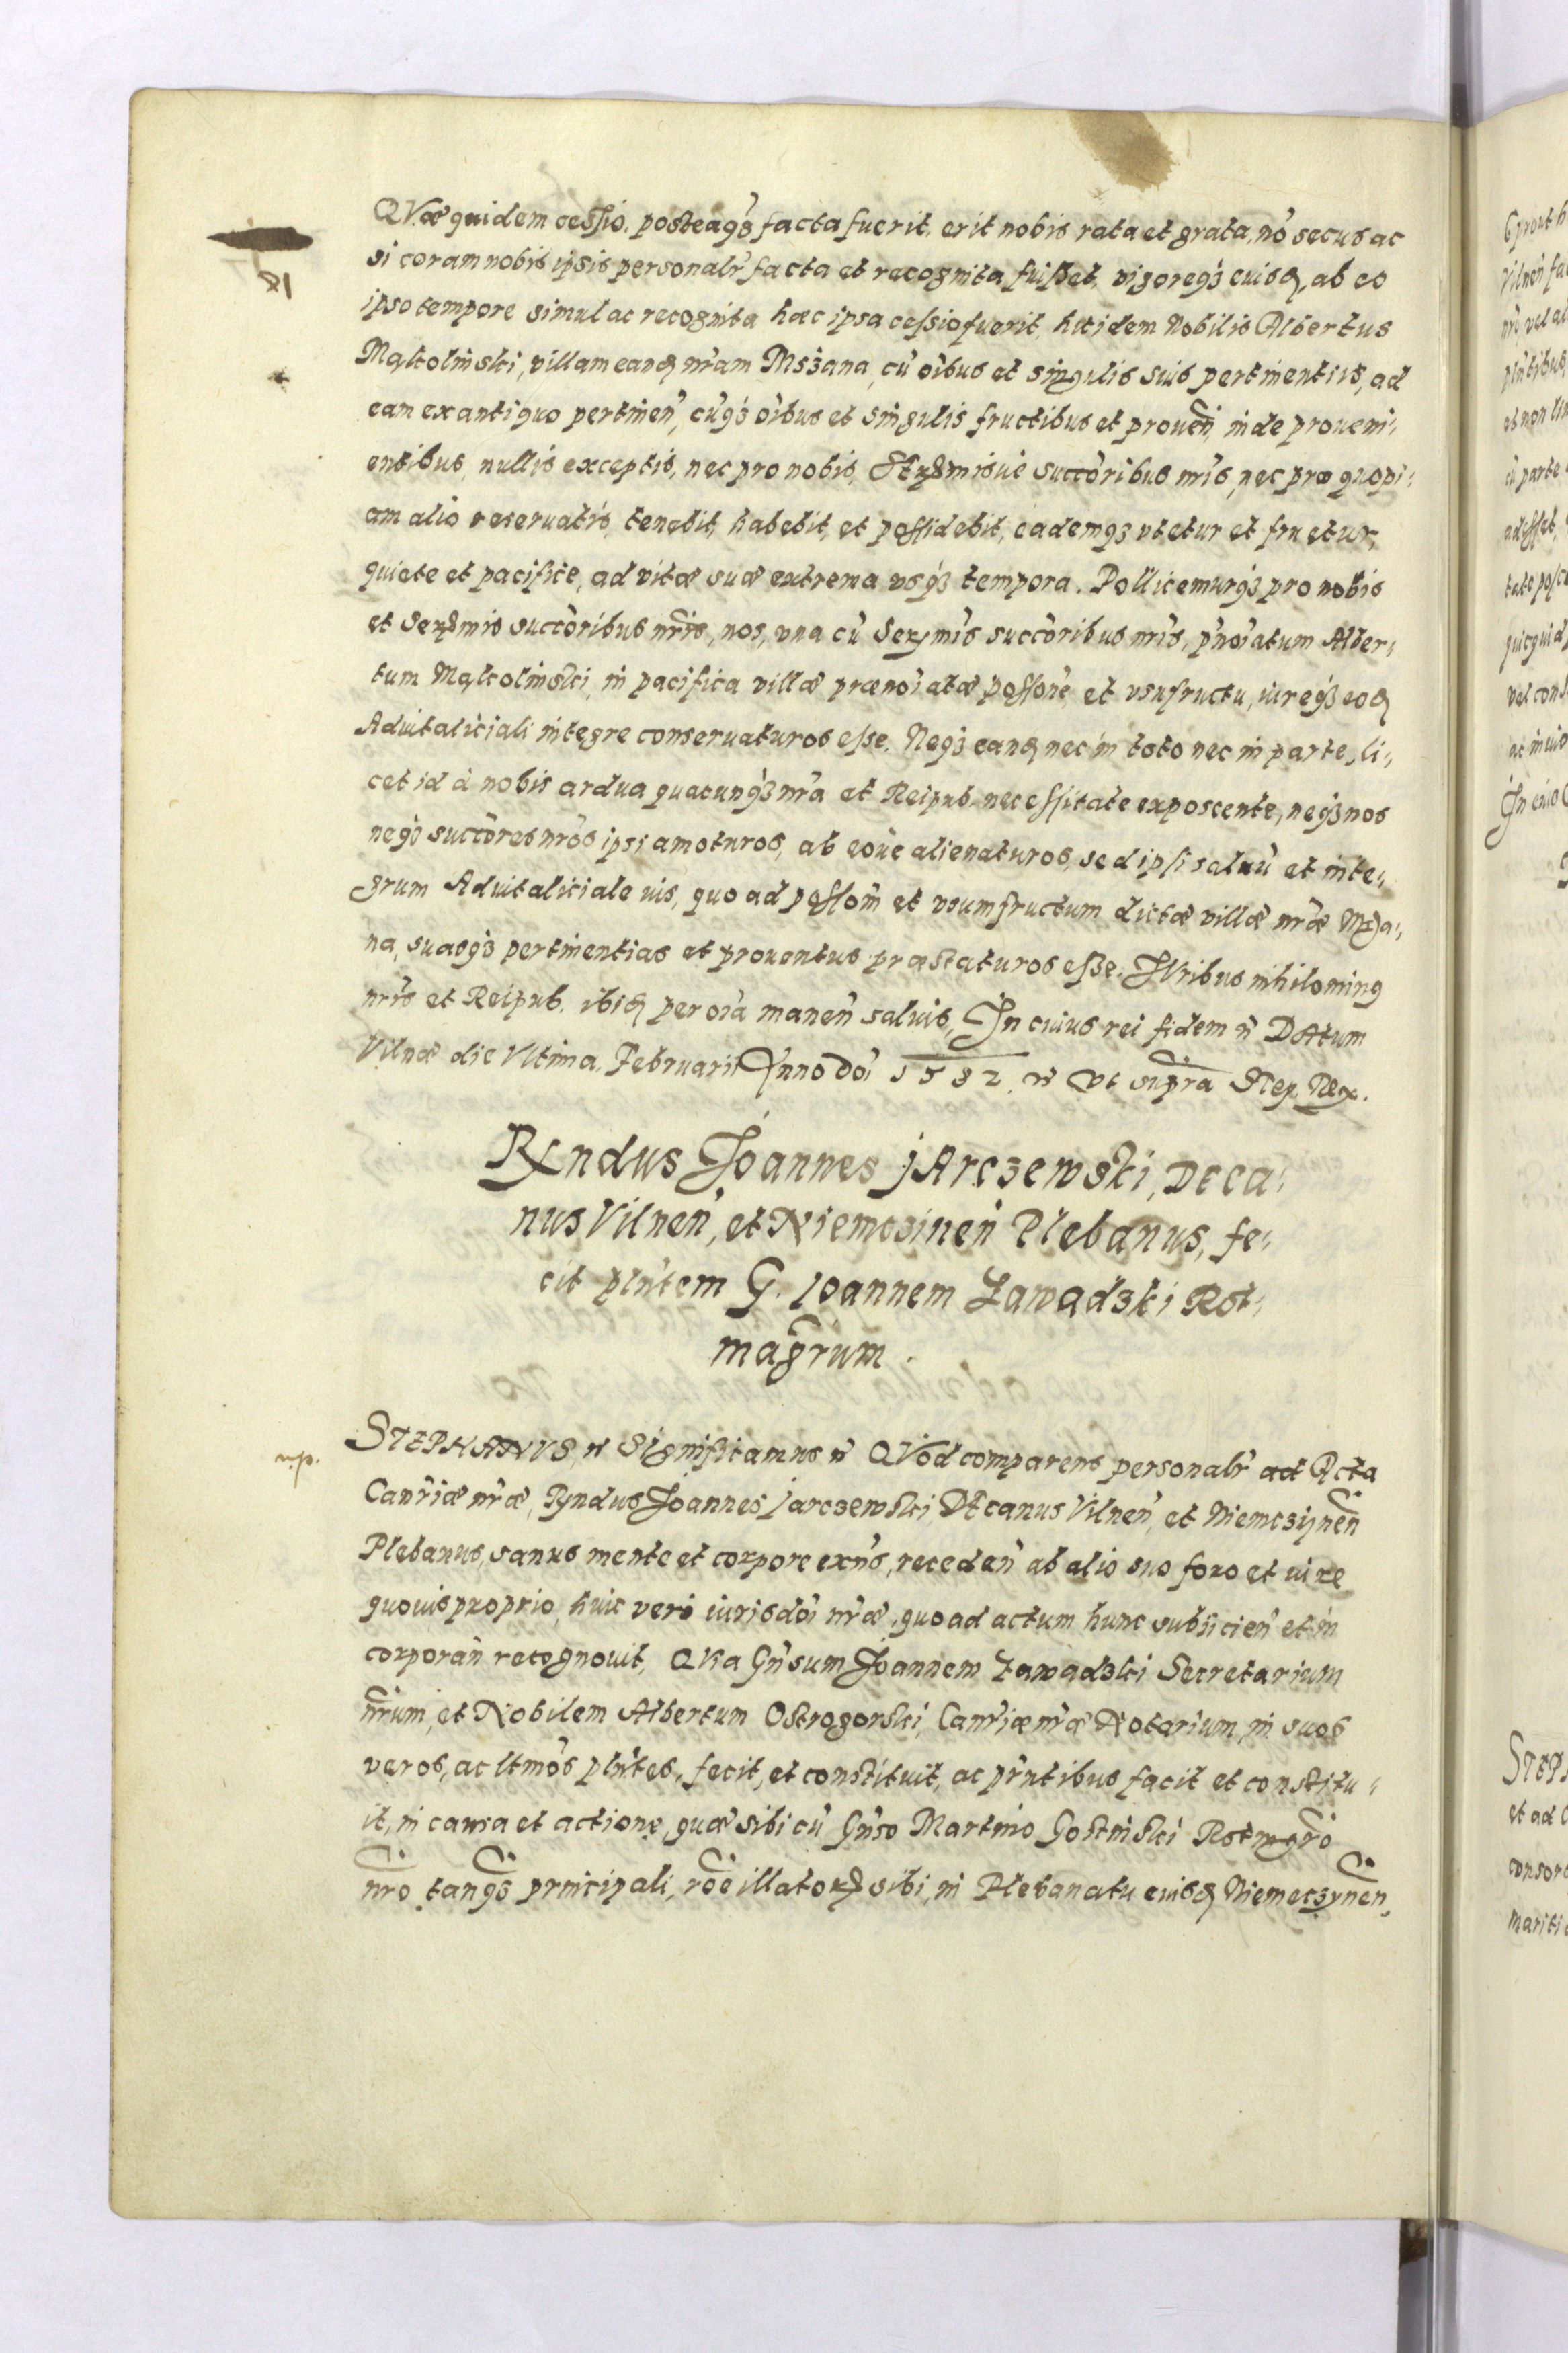 QVæ quidem cessio, posteaq̃ facta fuerit, erit nobis rata et grata, nõ secus ac
si coram nobis ipsis personalr̃ facta et recognita fuisset, vigoreq3 eiusd, ab eo
ipso tempore simul ac recognita hæc ipsa cessio fuerit, hic idem Nobilis Albertus
Małcolinski, villam eand nr̃am Mszana, cũ oĩbus et singulis suis pertinentiis, ad
eam ex antiquo pertineñ, cũq3 oĩbus et singulis fructibus et proueñ, inde proueni-
entibus, nullis exceptis, nec pro nobis, Sermisue succõribus nr̃is, nec pro quopi-
am alio reseruatis, tenebit, habebit, et possidebit, eademq3 vtetur et fruetur,
quiete et pacifice, ad vitæ suæ extrema vsq3 tempora. Pollicemurq3 pro nobis
et Sermis succõribus nr̃is, nos, vna cũ Sermis succõribus nr̃is, p̃noĩatum Alber-
tum Małcolinski in pacifica villæ prænoĩatæ possõne, et vsufructu, iureq3 eod
Aduitaliciali integre conseruaturos esse. Neq3 eand nec in toto nec in parte, li-
cet id à nobis ardua quacunq3 nr̃a et Reipub. necessitate exposcente, neq3 nos
neq3 succõres nr̃os ipsi amoturos, ab eoùe alienaturos, sed ipsi saluũ et inte-
grum Aduitaliciale ius, quo ad possõm et vsumfructum dictæ villæ nr̃æ Msza-
na, suasq3 pertinentias et prouentus præstaturos esse. Iuribus nihilominꝰ
nr̃is et Reipub. ibid per oĩa maneñ saluis, In cuius rei fidem ñ DAtum
Vilnæ die Vltima, Februarii Anno Doĩ 1582. ñ Vt supra Step. Rex.
Rndus Joannes jArczewski, Deca-
nus Vilneñ, et Niemczineñ Plebanus, fe-
cit pln̄tem G. Ioannem Zawadzki Rot-
mag̃rum.
STEPHANVS ñ Significamus ñ QVod comparens personalr̃ ad Acta
Canr̃iæ nr̃æ, Rndus Joannes Jarczewski DEcanus Vilneñ, et Niemczyneñ
Plebanus, sanus mente et corpore exñs, recedeñ ab alio suo foro et iure
quouis proprio, huic vero iurisdoĩ nr̃æ, quo ad actum hunc subiicieñ et in
corporañ recognouit, QVia Gñsum Joannem Zawadzki Secretarium
nr̃um, et Nobilem Albertum Ostrogorski, Canr̃iæ nr̃æ Notarium, in suos
veros, ac ltmõs pln̄tes, fecit, et constituit, ac pr̃ntibus facit et constitu-
it, in causa et actione, quæ sibi cũ Gñso Martino Gostinski Rotmg̃ro
nr̃o tanq̃ principali, rõe illatorum sibi, in Plebanatu eiusd Niemeczyneñ,